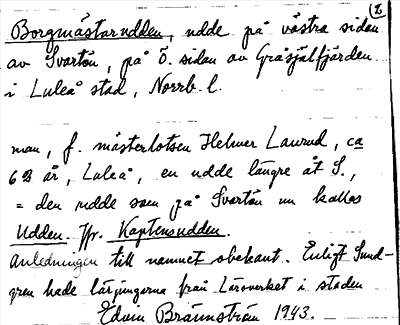 (2)
Borgmästarudden, udde på västra sidan
av Svartön, på ö. sidan av Gråsjälfjärden
i Luleå stad, Norrb. l.
man, f. mästerlotsen Helmer Laurud, ca
62 år, Luleå, en udde längre åt S.,
= den udde som på Svartön nu kallas
Udden. Jfr. Kaptensudden.
Anledningen till namnet obekant. Enligt Sund-
gren hade lärjungarna från Läroverket i staden
Edvin Brännström 1943.